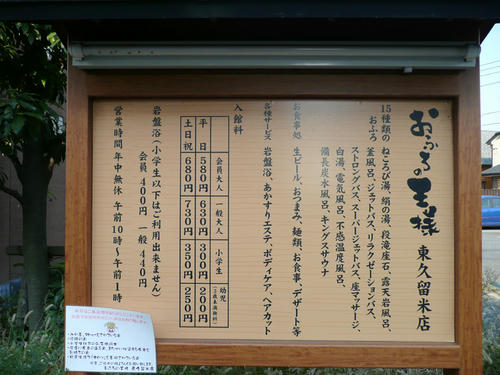 おふろの王様 東久留米店
15種類の ねころび湯、絹の湯、段滝座石、露天岩風呂、
おふろ 釜風呂、ジェットバス、リラクゼーションバス、
ストロングバス、スーパージェットバス、座マッサージ、
白湯、電気風呂、不感温度風呂、
備長炭水風呂、キングスサウナ
お食事処 生ビール、おつまみ、麺類、お食事、デザート等
各種サービス 岩盤浴、あかすりエステ、ボディケア、ヘアカット
入館料
会員大人 一般大人 小学生 幼児
平日 580円 630円 300円 200円
土日祝 680円 730円 350円 250円
岩盤浴(小学生以下はご利用出来ません)
会員 400円 一般 440円
営業時間 年中無休 午前10時〜午前1時